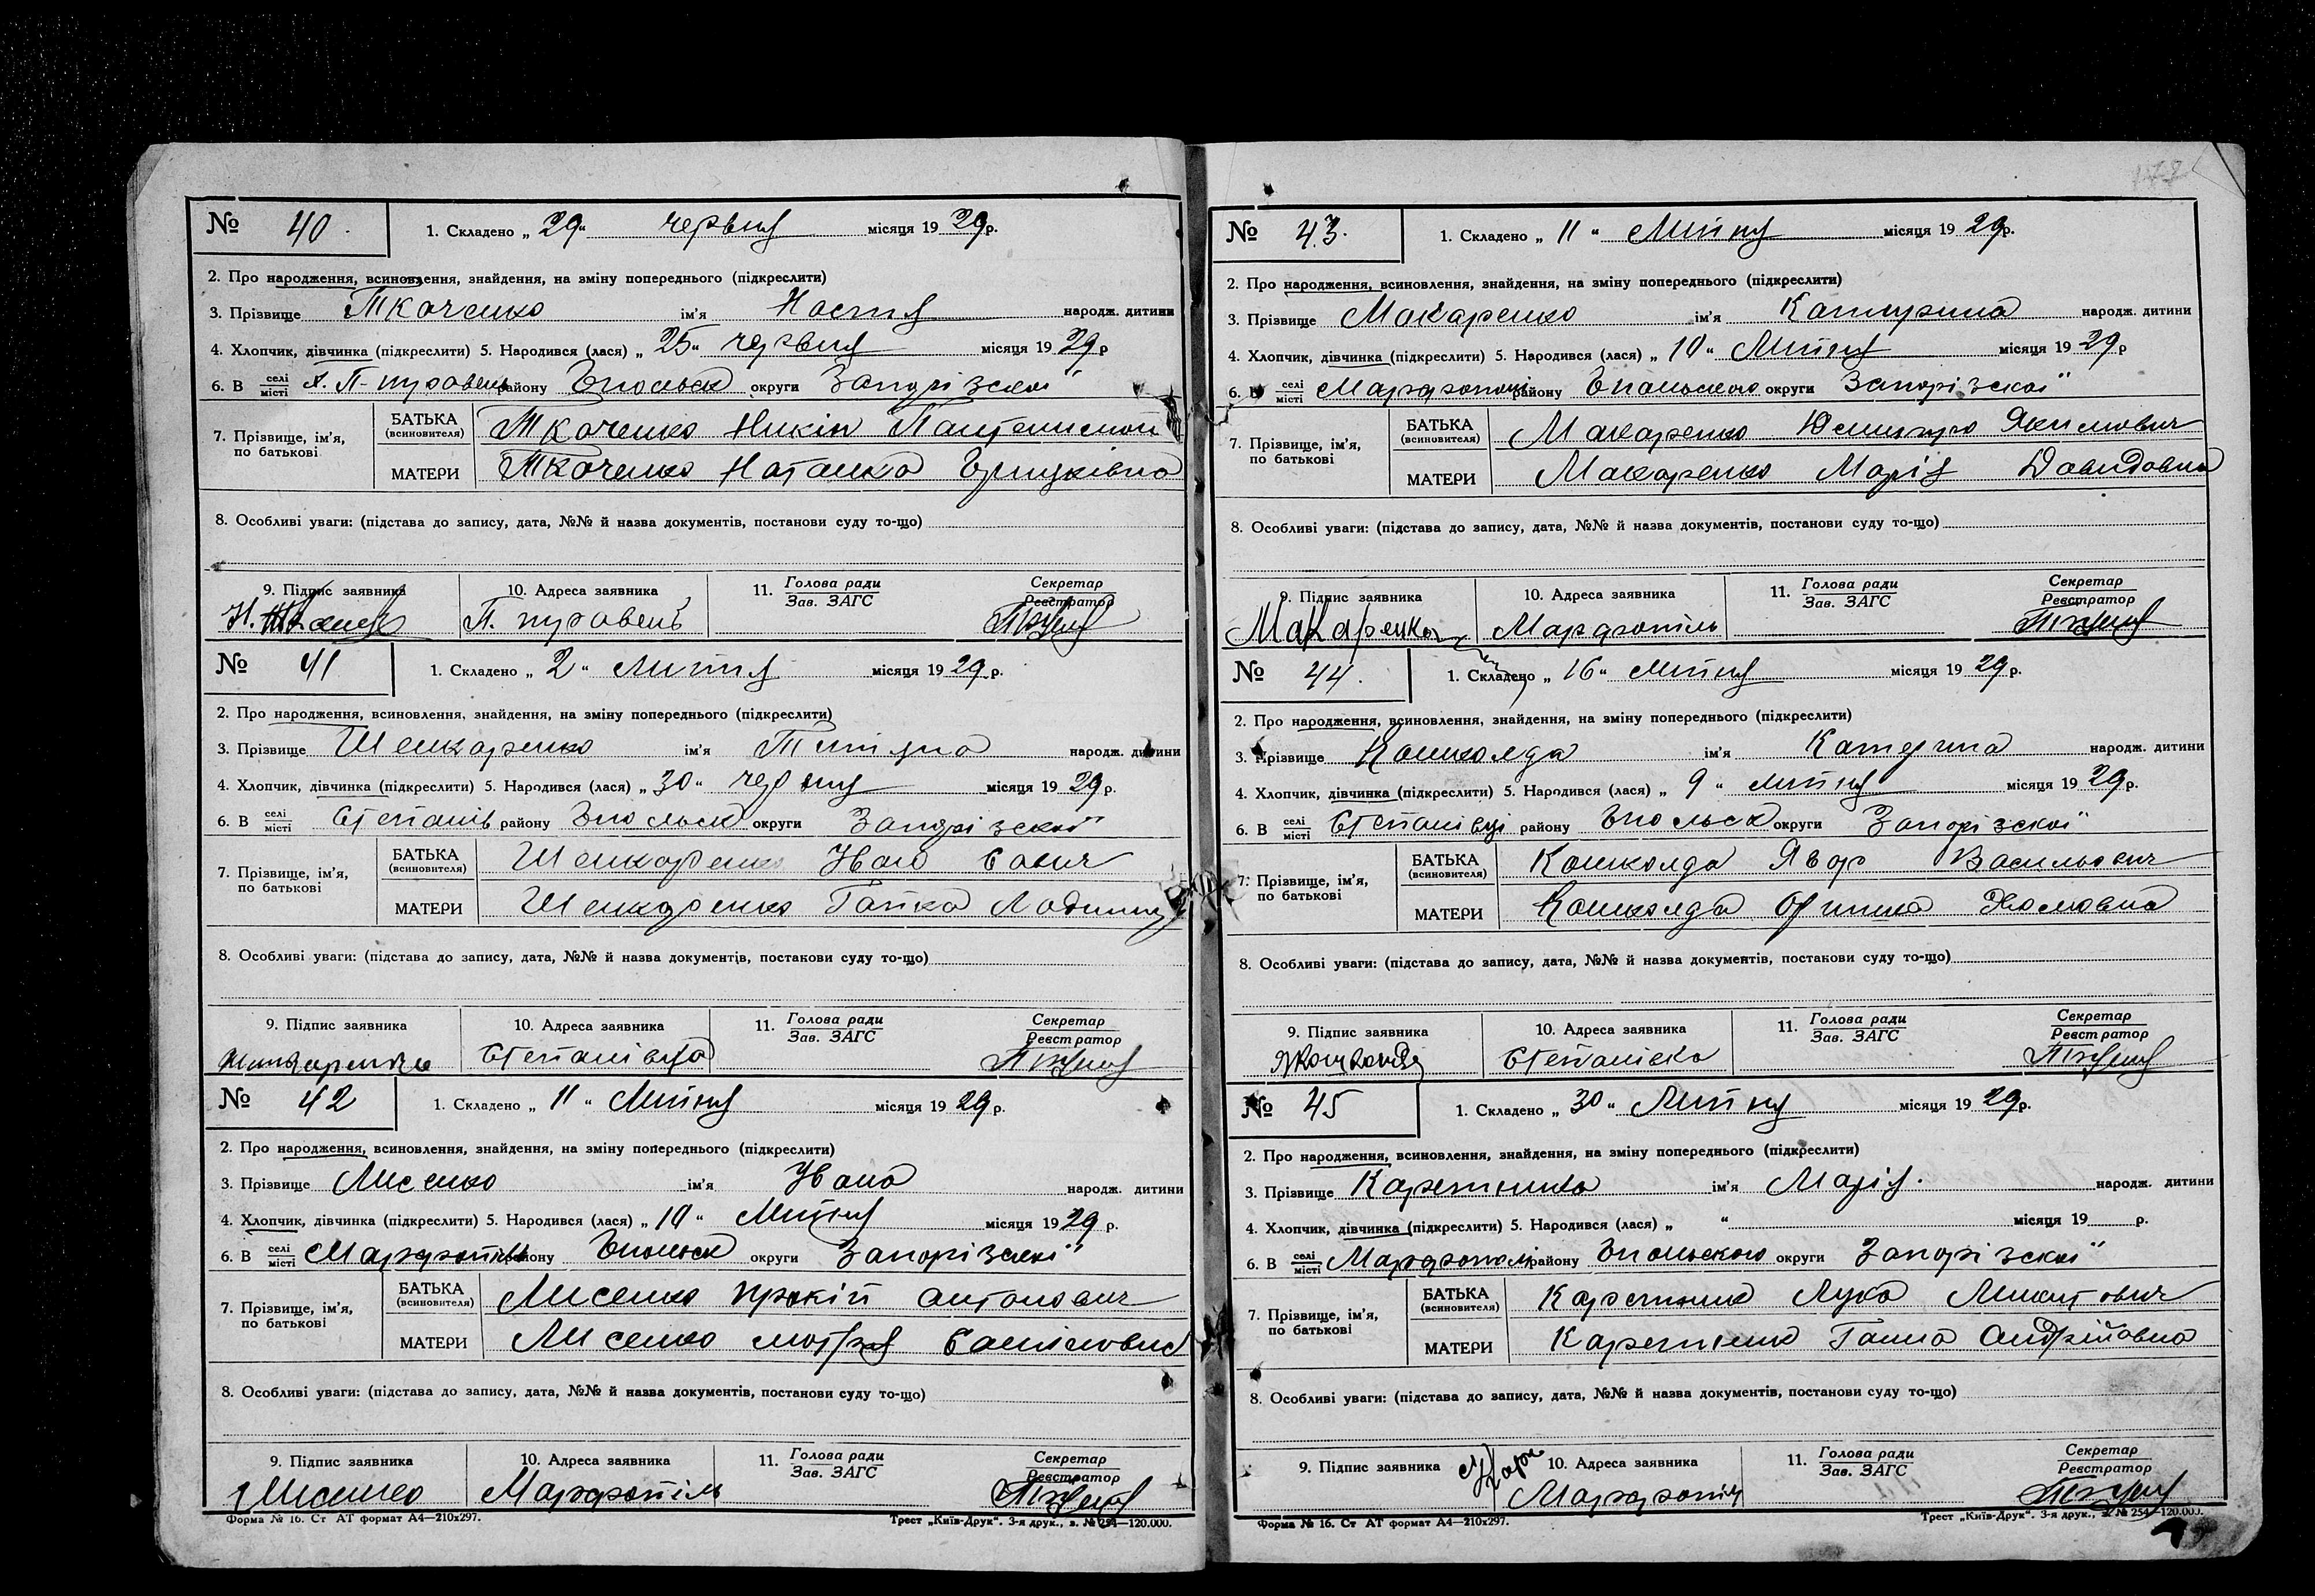 № 40. 1. Складено „ 29 “ червня місяця 1929р.
2. Про народження, всиновлення, знайдення, на зміну попереднього (підкреслити)
3. Прізвище Ткаченко ім'я Настя народж. дитини
4. Хлопчик, дівчинка (підкреслити) 5. Народився (лася) „ 25 “ червня місяця 1929р
6. В селі місті району округи Запорізской
7. Прізвище, ім'я, по батькові
БАТЬКА (всиновителя) Ткаченко
МАТЕРИ Ткаченко Наталка Грицківна
8. Особливі уваги: (підстава до запису, дата, №№ й назва документів, постанови суду то-що)
9. Підпис заявника 10. Адреса заявника 11. Голова ради Зав. ЗАГС Секретар Реєстратор
№ 41 1. Складено „ 2 “ місяця 1929.р.
2. Про народження, всиновлення, знайдення, на зміну попереднього (підкреслити)
3. Прізвище Шенкаренко ім'я Тетіяна народж. дитини
4. Хлопчик, дівчинка (підкреслити) 5. Народився (лася) „ 30 “ червня місяця 1929р.
6. В селі місті Степанів району округи Запорізской
7. Прізвище, ім'я, по батькові
БАТЬКА (всиновителя) Шенкаренко
МАТЕРИ Шенкаренко Гапка
8. Особливі уваги: (підстава до запису, дата, №№ й назва документів, постанови суду то-що)
9. Підпис заявника 10. Адреса заявника 11. Голова ради Зав. ЗАГС Секретар Реєстратор
Степанівца
№ 42 1. Складено „ 11 “ Липня місяця 1929р.
2. Про народження, всиновлення, знайдення, на зміну попереднього (підкреслити)
3. Прізвище Лисенко ім'я Ивана народж. дитини
4. Хлопчик, дівчинка (підкреслити) 5. Народився (лася) „ 10 “ Липня місяця 1929 р.
6. В селі місті району округи Запорізской
7. Прізвище, ім'я, по батькові
БАТЬКА (всиновителя) Лисенко Прокіп Антонович
МАТЕРИ Лисенко Мотря
8. Особливі уваги: (підстава до запису, дата, №№ й назва документів, постанови суду то-що)
9. Підпис заявника 10. Адреса заявника 11. Голова ради Зав. ЗАГС Секретар Реєстратор
Лисенко Марфопіль
Форма № 16. Ст АТ формат А4—210x297. Трест „Київ-Друк“. 3-я друк., з. № 254—120.000.
№ 43. 1. Складено „ 11 “ Липня місяця 1929р.
2. Про народження, всиновлення, знайдення, на зміну попереднього (підкреслити)
3. Прізвище Макаренко ім'я Катирина народж. дитини
4. Хлопчик, дівчинка (підкреслити) 5. Народився (лася) „ 10 “ Липня місяця 1929р
6. В селі місті району округи Запорізской
7. Прізвище, ім'я, по батькові
БАТЬКА (всиновителя) Макаренко Якимович
МАТЕРИ Макаренко Марія Давидовна
8. Особливі уваги: (підстава до запису, дата, №№ й назва документів, постанови суду то-що)
9. Підпис заявника 10. Адреса заявника 11. Голова ради Зав. ЗАГС Секретар Реєстратор
Марфопіль
№ 44. 1. Складено „ 16 “ Липня місяця 1929р.
2. Про народження, всиновлення, знайдення, на зміну попереднього (підкреслити)
3. Прізвище Кошколда ім'я Катерина народж. дитини
4. Хлопчик, дівчинка (підкреслити) 5. Народився (лася) „ 9 “ липня місяця 1929р.
6. В селі місті Степанівці району округи Запорізской
7. Прізвище, ім'я, по батькові
БАТЬКА (всиновителя) Кошколда Явор Васильович
МАТЕРИ Кошколда Оришка
8. Особливі уваги: (підстава до запису, дата, №№ й назва документів, постанови суду то-що)
9. Підпис заявника 10. Адреса заявника 11. Голова ради Зав. ЗАГС Секретар Реєстратор
Степанівка
№ 45 1. Складено „ 30 “ Липня місяця 1929р.
2. Про народження, всиновлення, знайдення, на зміну попереднього (підкреслити)
3. Прізвище ім'я Марія. народж. дитини
4. Хлопчик, дівчинка (підкреслити) 5. Народився (лася) „ “ місяця 19 р.
6. В селі місті Марфополі району округи Запорізской
7. Прізвище, ім'я, по батькові
БАТЬКА (всиновителя) Каретник Лука Микитович
МАТЕРИ Ганна Андрійовна
8. Особливі уваги: (підстава до запису, дата, №№ й назва документів, постанови суду то-що)
9. Підпис заявника 10. Адреса заявника 11. Голова ради Зав. ЗАГС Секретар Реєстратор
Марфопіл
Форма № 16. Ст АТ формат А4—210x297. Трест „Київ-Друк“. 3-я друк., з. № 254—120.000.